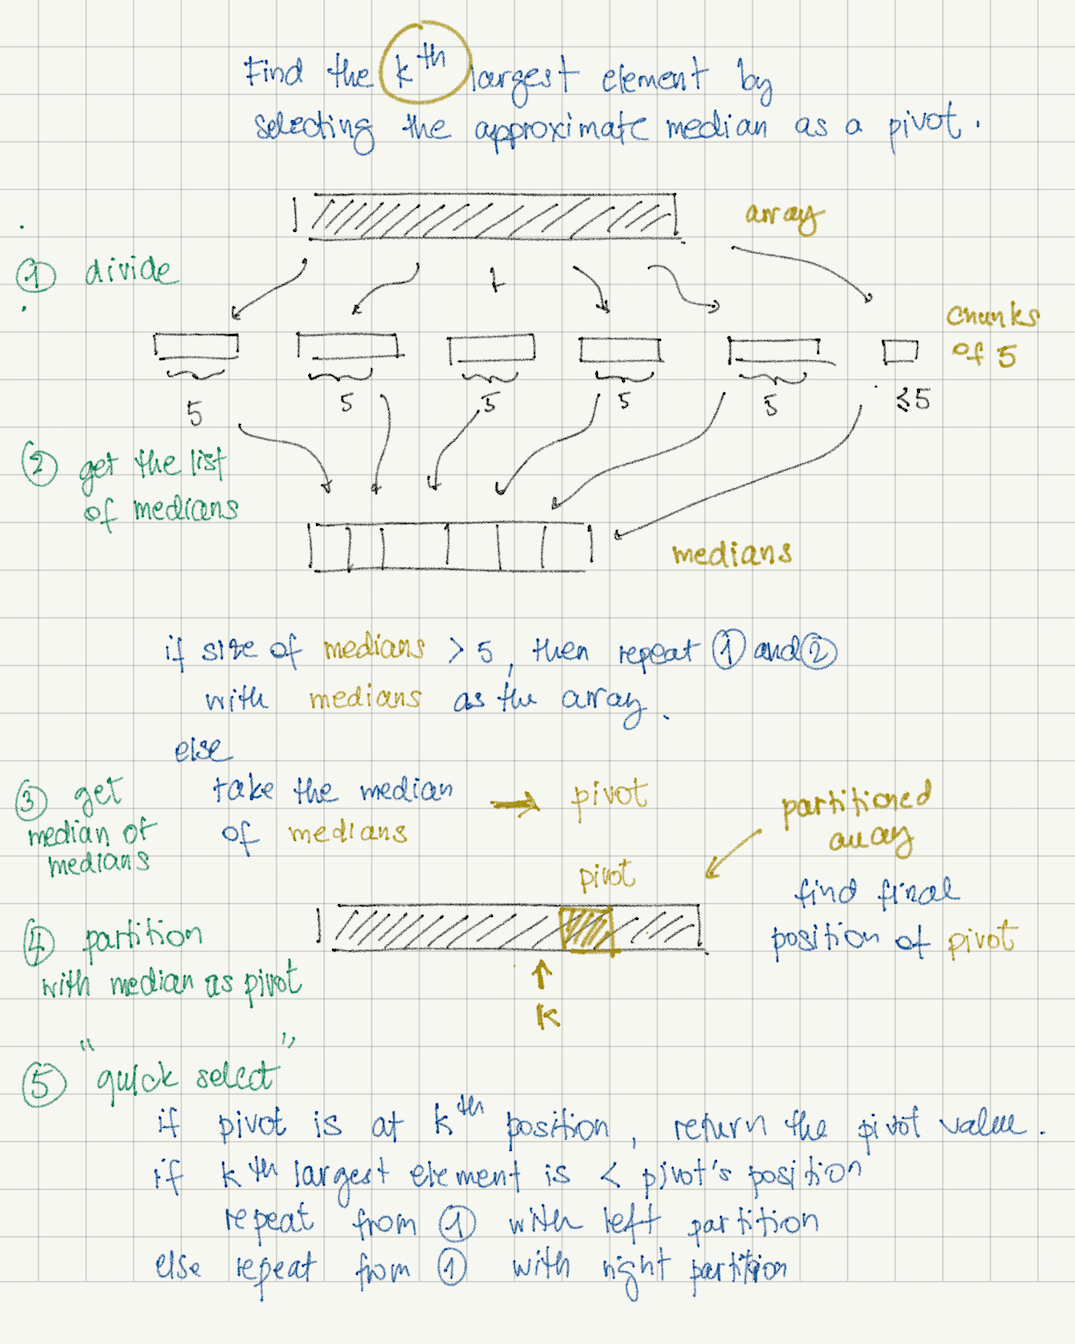 Find the kth largest element by
selecting the approximate median as a pivot.
array
① divide
chunks
of 5
5 5 5 5 5 ≤5
② get the list
of medians
medians
if size of medians > 5, then repeat ① and ②
with medians as the array.
else
③ get
median of
medians
take the median
of medians
→ pivot
partitioned
array
pivot
find final
position of pivot
④ partition
with median as pivot
k
⑤ "quick select"
if pivot is at kth position, return the pivot value.
if kth largest element is < pivot's position
repeat from ① with left partition
else repeat from ① with right partition